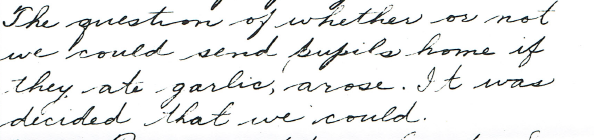 The question of whether or not
we could send pupils home if
they ate garlic, arose. It was
decided that we could.